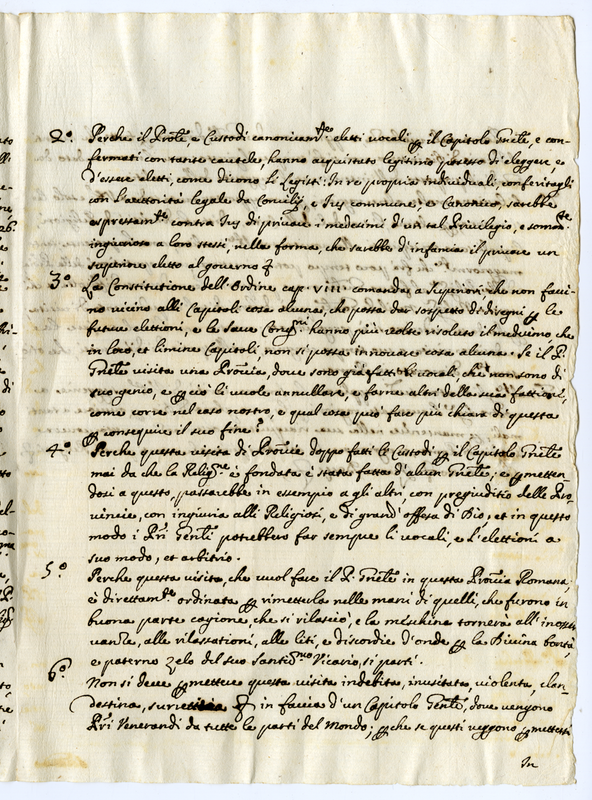 2º. Perche il Prõle, e Custodi canonicam.te eletti vocali p il Capitolo Gnẽle, e con-
fermati con tante cautele, hanno acquistato legitimo possesso di eleggere, e
d'essere eletti, come dicono li Legisti: In re propria individuali, conferitagli
con l'autorità legale da Concilij, e Ius commune, e Canonico, sarebbe
espressam.te contra Ius di privare i medesimi d'un tal Privilegio, e som.te
ingiurioso a loro stessi, nella forma, che sarebbe d'infamia il privare un
superiore eletto al governo
3º. La Constitutione dell'Ordine cap. VIII comanda a Superiori, che non facci-
no vicino alli Capitoli cosa alcuna, che possa dar sospetto di disegni p le
future elettioni, e la Sacra Cong.ni hanno più volte risoluto il medesimo che
in loco, et limine Capitoli, non si possa innovare cosa alcuna. Se il P.
Gnẽle visita una Prõvia, dove sono già fatti li vocali, che non sono di
suo genio, e p ciò li vuole annullare, e farne altri della sua fattione,
come corre nel caso nostro, e qual cosa può fare più chiara di questa
p conseguire il suo fine?
4º. Perche questa visita di Prõvie doppo fatti le Custodi p il Capitolo Gnẽle
mai da che la Relig.ne è fondata è stata fatta d'alcun Gnẽle; e pmetten-
dosi a questo, passarebbe in essempio a gli altri, con pregiuditio delle Pro-
vincie, con ingiuria alli Religiosi, e di grand'offesa di Dio, et in questo
modo i Pri Gnẽli potrebbero far sempre li vocali, e l'elettioni a
suo modo, et arbitrio.
5º. Perche questa visita, che vuol fare il P. Gnẽle in questa Prõvia Romana,
è direttam.te ordinata p rimetterla nelle mani di quelli, che furono in
buona parte cagione, che si rilasciò, e la meschina tornerà all'inosser-
vanza, alle rilassationi, alle liti, e discordie d'onde p la Divina bontà,
e paterno zelo del suo Santiss.mo Vicario, si partì.
6º. Non si deve pmettere questa visita indebita, inusitata, violenta, clan-
destina, surrettitia in faccia d'un Capitolo Gnẽle, dove vengono
Pri Venerandi da tutte le parti del Mondo; p che se questi veggono pmettersi
In